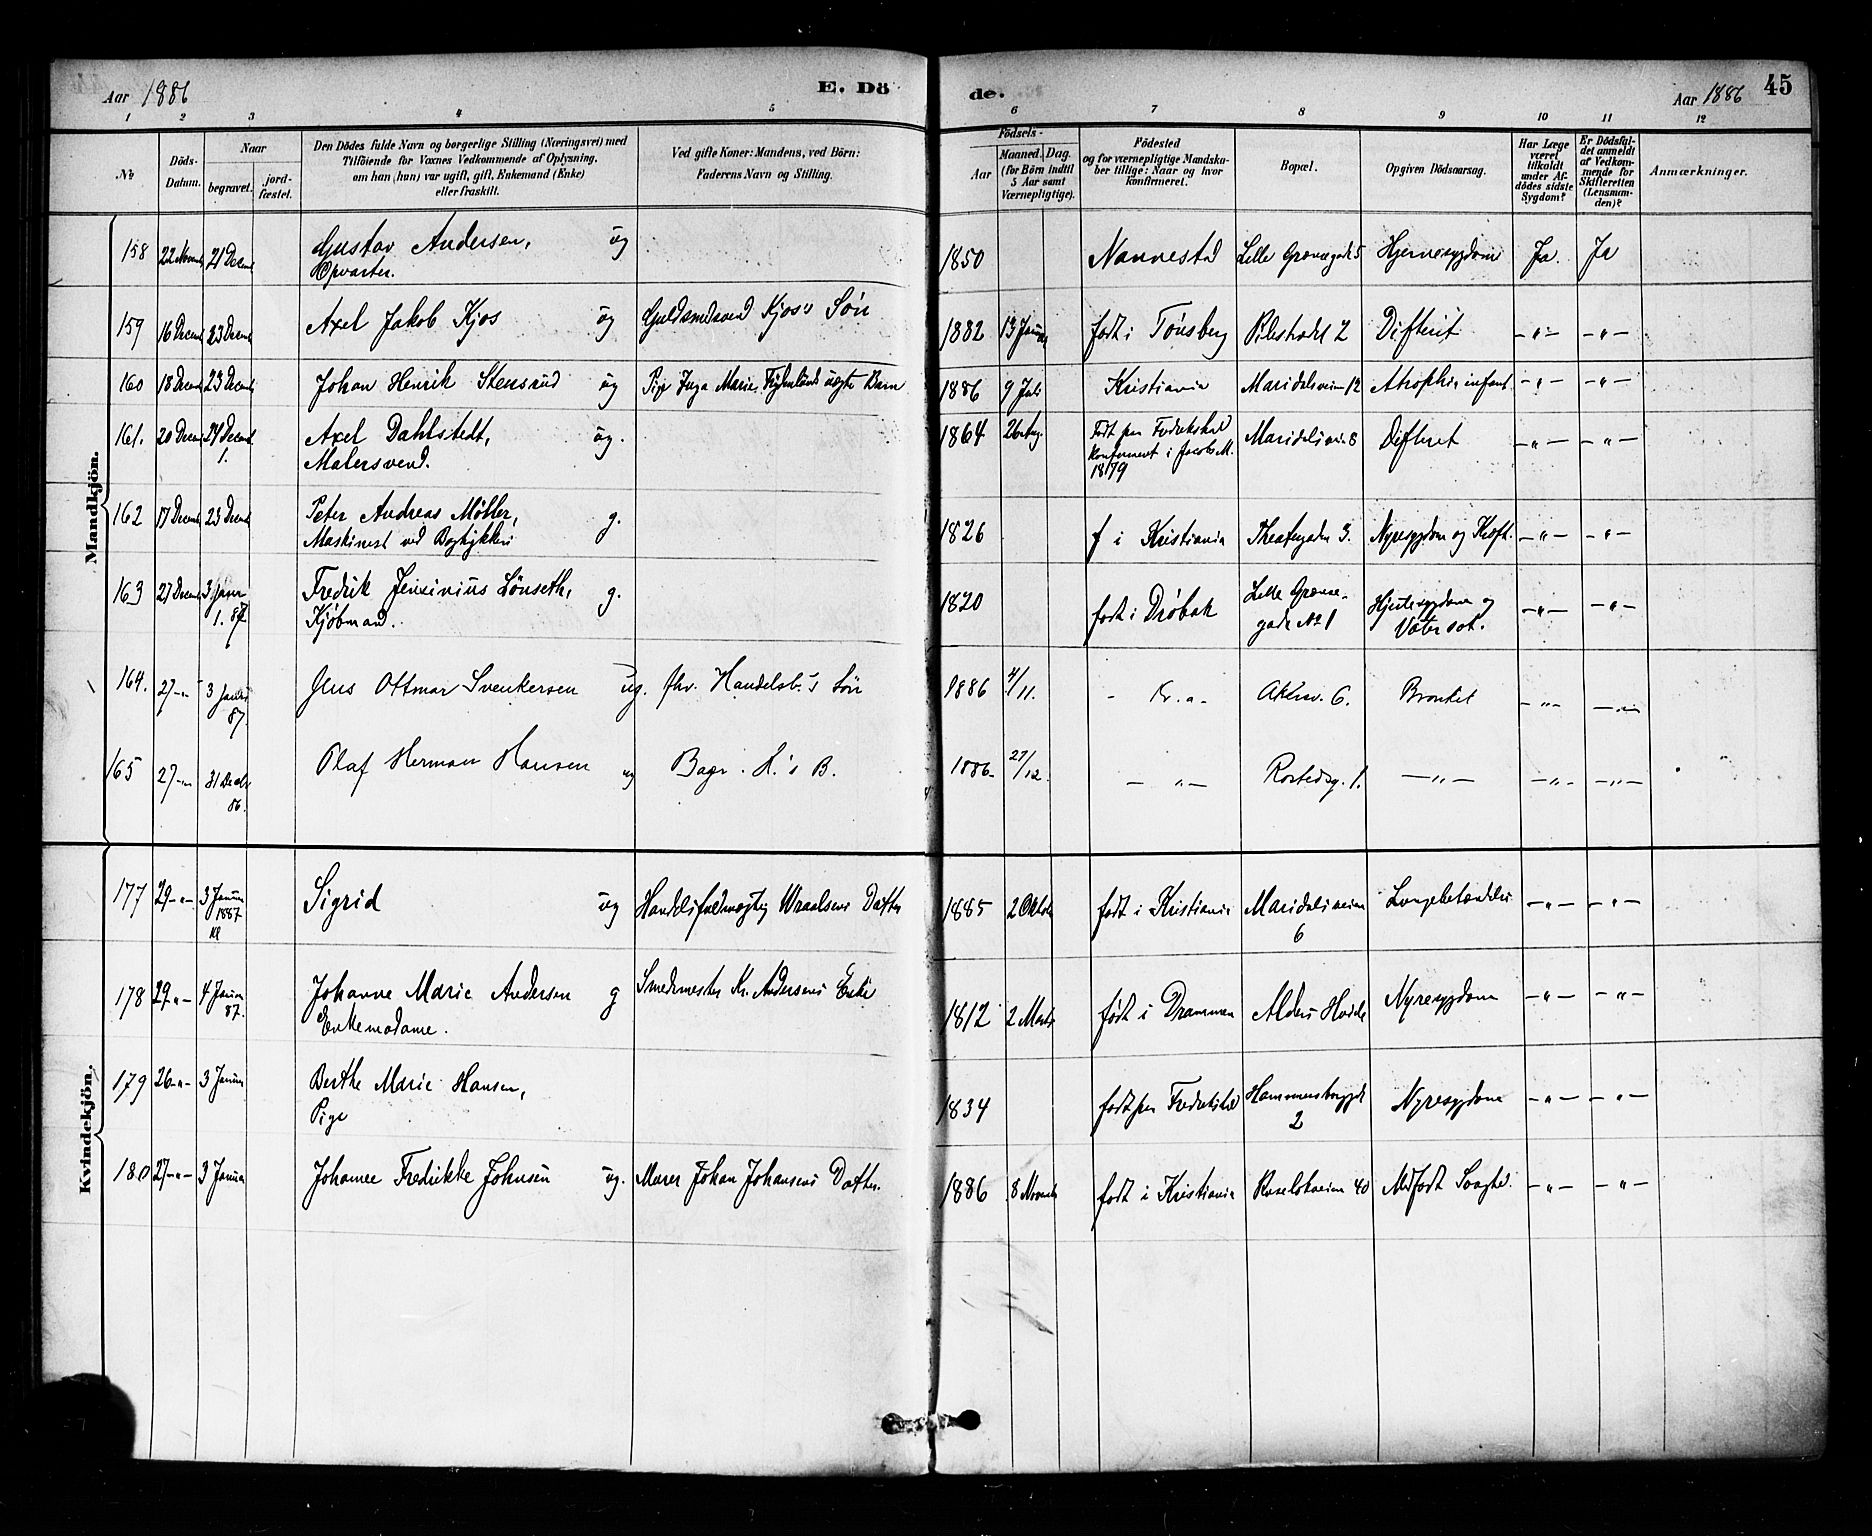 Aar 1886
E. Dö
de.
Aar 1886
45
1 2 3 4 5 6 7 8 9 10 11 12
No
Döds-
Datum.
Naar
begravet.
jord-
fæstet.
Den Dödes fulde Navn og borgerlige Stilling (Næringsvei) med
Tilföiende for Voxnes Vedkommende af Oplysning,
om han (hun) var ugift, gift, Enkemand (Enke)
eller fraskilt.
Ved gifte Koner: Mandens, ved Börn:
Faderens Navn og Stilling.
Födsels-
Aar
Maaned. Dag.
(for Börn indtil
5 Aar samt
Værnepligtige).
Födested
og for værnepligtige Mandska-
ber tillige: Naar og hvor
konfirmeret.
Bopæl.
Opgiven Dödsaarsag.
Har Læge
været
tilkaldt
under Af-
dödes sidste
Sygdom?
Er Dödsfal-
det anmeldt
af Vedkom-
mende for
Skifteretten
(Lensman-
den)?
Anmærkninger.
Mandkjön.
158 22 Novemb 21 Decemb Gustav Andersen, ug 1850 Nannestad Lille Grænsegade 5 Hjernesygdom Ja. Ja
Opvarter.
159 16 Decemb 23 Decemb Axel Jakob Kjos ug Guldsmedsvend Kjos's Søn 1882 13 Januar født i Tønsberg Pilestrædet 2 Difterit -"- -"-
160 18 Decemb 23 Decemb Johan Henrik Stensrud ug Pige Inga Marie uægte Barn 1886 9 Juli Kristiania Maridalsveien 12 Atrophia infant. -"- -"-
161. 20 Decemb 24 Decemb Axel Dahlstedt, ug. 1864 26 Aug. Født paa Fredrikshald Maridalsvei. 8 Difterit -"- -"-
1. Malersvend. Konfirmeret i Jacobs M.
1879
162 17 Decemb 23 Decemb Peter Andreas Møller, g. 1826 f i Kristiania Theatergaden 3. Nyresygdom og Kræft. -"- -"-
Maskinist ved Bogtrykkeri
163 27 Decemb 3 Januar Fredrik Lønseth, g. 1820 født i Drøbak Lille Grænse- Hjertesygdom og -"- -"-
1. 87. Kjøbmand. gade No 1 Vatersot.
164. 27-"- 3 Januar Jens Ottmar Svenkersen ug. fhv. Handelsb.'s Søn 1886 4/11. - Kr.a - Akersv. 6. Bronkit -"- -"-
87.
165 27-"- 31 Decbr Olaf Herman Hansen ug Bager H.'s B. 1886. 27/12. -"- Rostedsg. 1. -"- -"- -"-
86.
Kvindekjön.
177 29-"- 3 Januar Sigrid ug Handelsfuldmægtig Wraalsens Datter 1885 2 Oktob født i Kristiania Maridalsveien Lungebetændelse -"- -"-
1887 6
178 29-"- 4 Januar Johanne Marie Andersen g Smedmester Kr. Andersens Enke 1812 2 Marts født i Drammen Alders Hvile Nyresygdom -"- -"-
87. Enkemadame.
179 26-"- 3 Januar Berthe Marie Hansen, 1834 født paa Fredrikshald Hammersborggd Nyresygdom -"- -"-
Pige 2
180 27-"- 3 Januar Johanne Fredrikke Johnsen ug. Murer Johan Johansens Datter. 1886 8 Novemb født i Kristiania 40 Medfødt Svaghed. -"- -"-